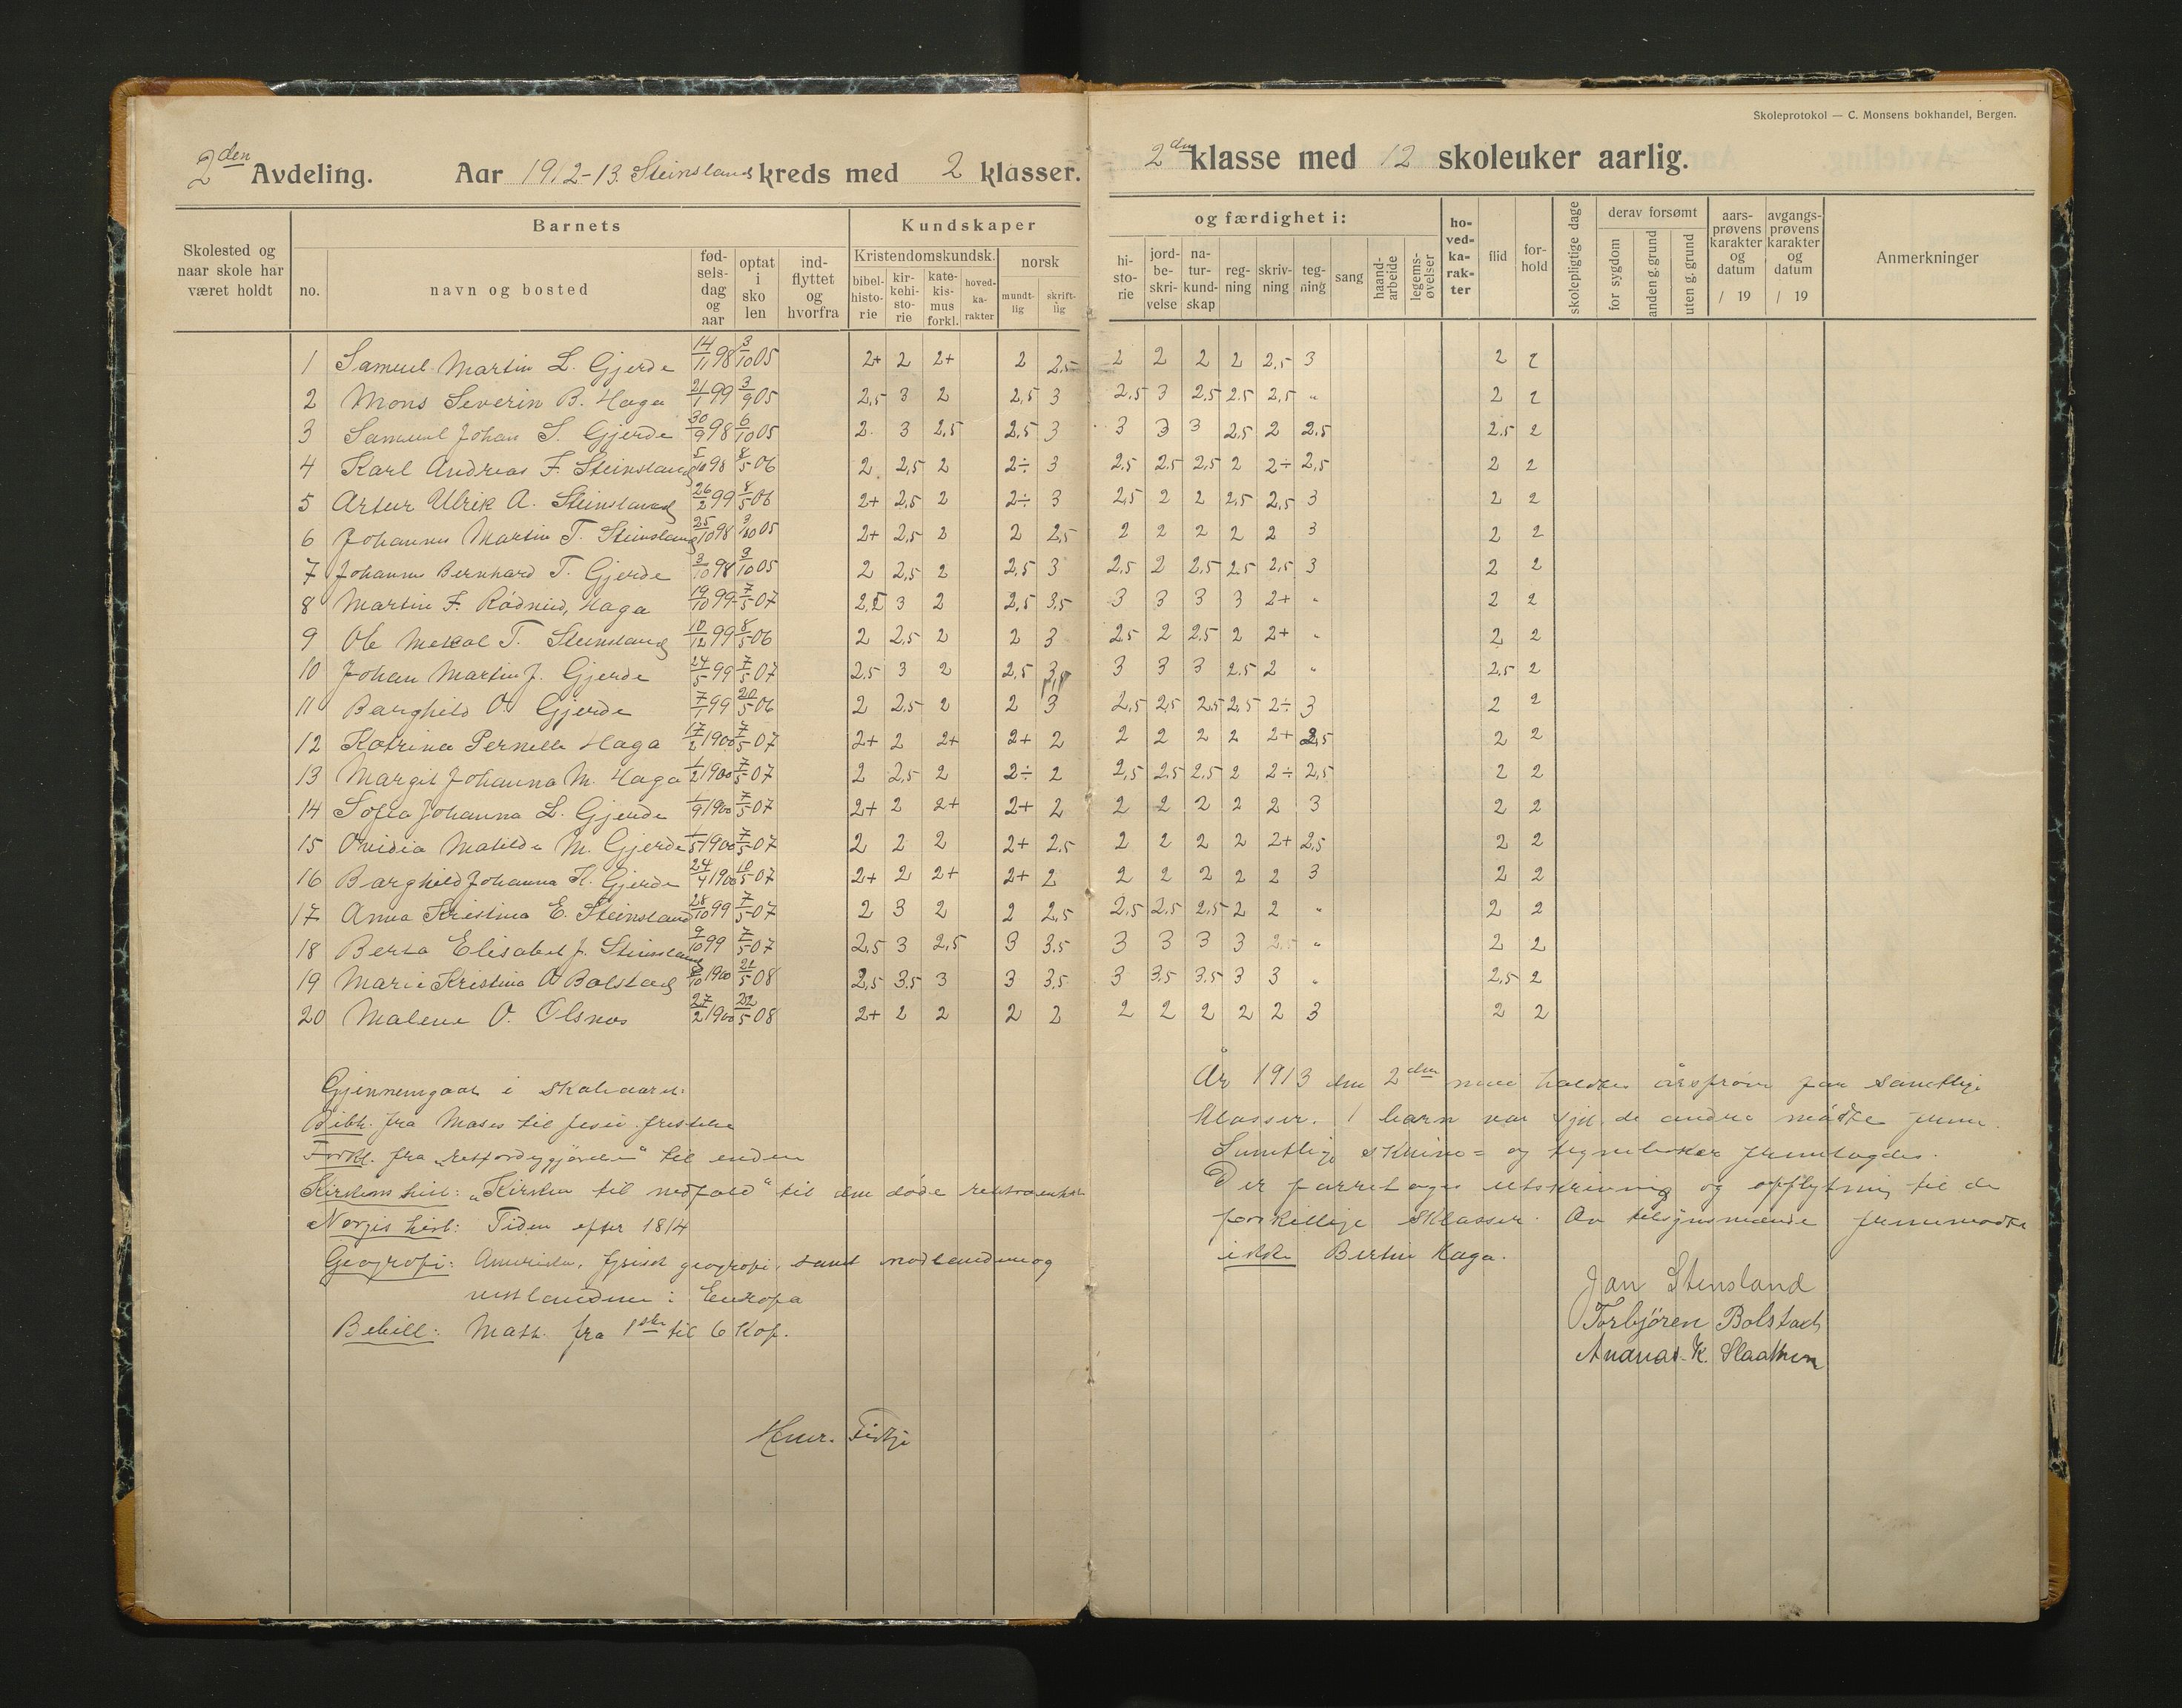 Skoleprotokol — C. Monsens bokhandel, Bergen.
2den Avdeling. Aar 1912-13. Steinsland kreds med 2 klasser.
2den klasse med 12 skoleuker aarlig.
Skolested og naar skole har været holdt
Barnets
no.
navn og bosted
fødselsdag og aar
optat i skolen
indflyttet og hvorfra
Kundskaper
Kristendomskundsk.
bibelhistorie
kirkehistorie
katekismus forkl.
hovedkarakter
norsk
mundtlig
skriftlig
og færdighet i:
historie
jordbeskrivelse
naturkundskap
regning
skrivning
tegning
sang
haandarbeide
legemsøvelser
hovedkarakter
flid
forhold
skolepligtige dage
derav forsømt
for sygdom
anden g. grund
uten g. grund
aarsprøvens karakter og datum / 19
avgangsprøvens karakter og datum / 19
Anmerkninger
1 Samuel Martin L. Gjerde 14/11 98 3/10 05 2+ 2 2+ 2 2,5 2 2 2 2 2,5 3 2 2
2 Mons Severin B. Haga 21/1 99 3/9 05 2,5 3 2 2,5 3 2,5 3 2,5 2,5 2,5 " 2 2
3 Samuel Johan S. Gjerde 30/9 98 6/10 05 2 3 2,5 2,5 3 3 3 3 2,5 2 2,5 2,5 2
4 Karl Andreas F. Steinsland 5/10 98 8/5 06 2 2,5 2 2÷ 3 2,5 2,5 2,5 2 2÷ 2,5 2 2
5 Artur Ulrik A. Steinsland 26/2 99 8/5 06 2+ 2,5 2 2÷ 3 2,5 2 2 2,5 2,5 3 2 2
6 Johannes Martin T. Steinsland 25/10 98 3/10 05 2+ 2,5 2 2 2,5 2 2 2 2 2 3 2 2
7 Johannes Bernhard T. Gjerde 3/10 98 3/10 05 2 2,5 2 2,5 3 2,5 2 2,5 2,5 2,5 3 2 2
8 Martin F. Haga 19/10 99 7/5 07 2,5 3 2 2,5 3,5 3 3 3 3 2+ " 2 2
9 Ole T. Steinsland 10/12 99 8/5 06 2 2,5 2 2 3 2,5 2 2,5 2 2+ " 2 2
10 Johan Martin J. Gjerde 24/5 99 7/5 07 2,5 3 2 2,5 3,5 3 3 3 2,5 2 " 2,5 2
11 Borghild O. Gjerde 7/1 99 20/5 06 2 2,5 2 2 3 2,5 2,5 2,5 2,5 2÷ 3 2 2
12 Katrina Pernelle Haga 17/2 1900 7/5 07 2+ 2 2+ 2+ 2 2 2 2 2 2+ 2,5 2 2
13 Margit Johanna M. Haga 1/2 1900 7/5 07 2 2,5 2 2÷ 2 2,5 2,5 2,5 2 2÷ 2,5 2 2
14 Sofia Johanna L. Gjerde 1/9 1900 7/5 07 2+ 2 2+ 2+ 2 2 2 2 2 2 3 2 2
15 Ovidia Matilde M. Gjerde 1/5 1900 7/5 07 2 2 2 2+ 2,5 2 2 2 2 2+ 2,5 2 2
16 Borghild Johanna K. Gjerde 24/4 1900 10/5 07 2+ 2 2+ 2+ 2 2 2 2 2 2 3 2 2
17 Anna Kristina E. Steinsland 28/10 99 7/5 07 2 3 2 2 2,5 2,5 2,5 2,5 2 2 " 2 2
18 Berta Elisabet J. Steinsland 9/10 99 7/5 07 2,5 3 2,5 3 3,5 3 3 3 3 2,5 " 2 2
19 Marie Kristina O Bolstad 1900 21/5 08 2,5 3,5 3 3 3,5 3 3,5 3,5 3 3 " 2,5 2
20 Malene O. Olsnes 27/2 1900 22/5 08 2+ 2 2 2 2 2 2 2 2 2 3 2 2
Gjennemgaat i skoleaaret:
Bibh. fra Moses til Jesu fristelse
Forkl. fra "Retfærdiggjørelse" til enden
Kirkens hist: "Kirken til nedfald" til den døde
Norges hist: Tiden efter 1814
Geografi: Amerika, fysisk geografi, samt nordlandene og
vestlandene i Europa
Bibell: Matt. fra 1ste til 6 Kap.
Henr. Fidtje
År 1913 den 2den mai holdtes årsprøve for samtlige
klasser. 1 barn var syk, de andre mødte frem.
Samtlige skrive= og tegnebøker fremlagdes.
Der foretages utskrivning og opflytning til de
forskjellige klasser. Av tilsynsmænd fremmødte
ikke Bertin Haga.
Jan Stensland
Torbjören Bolstad
Andreas K. Slaatten